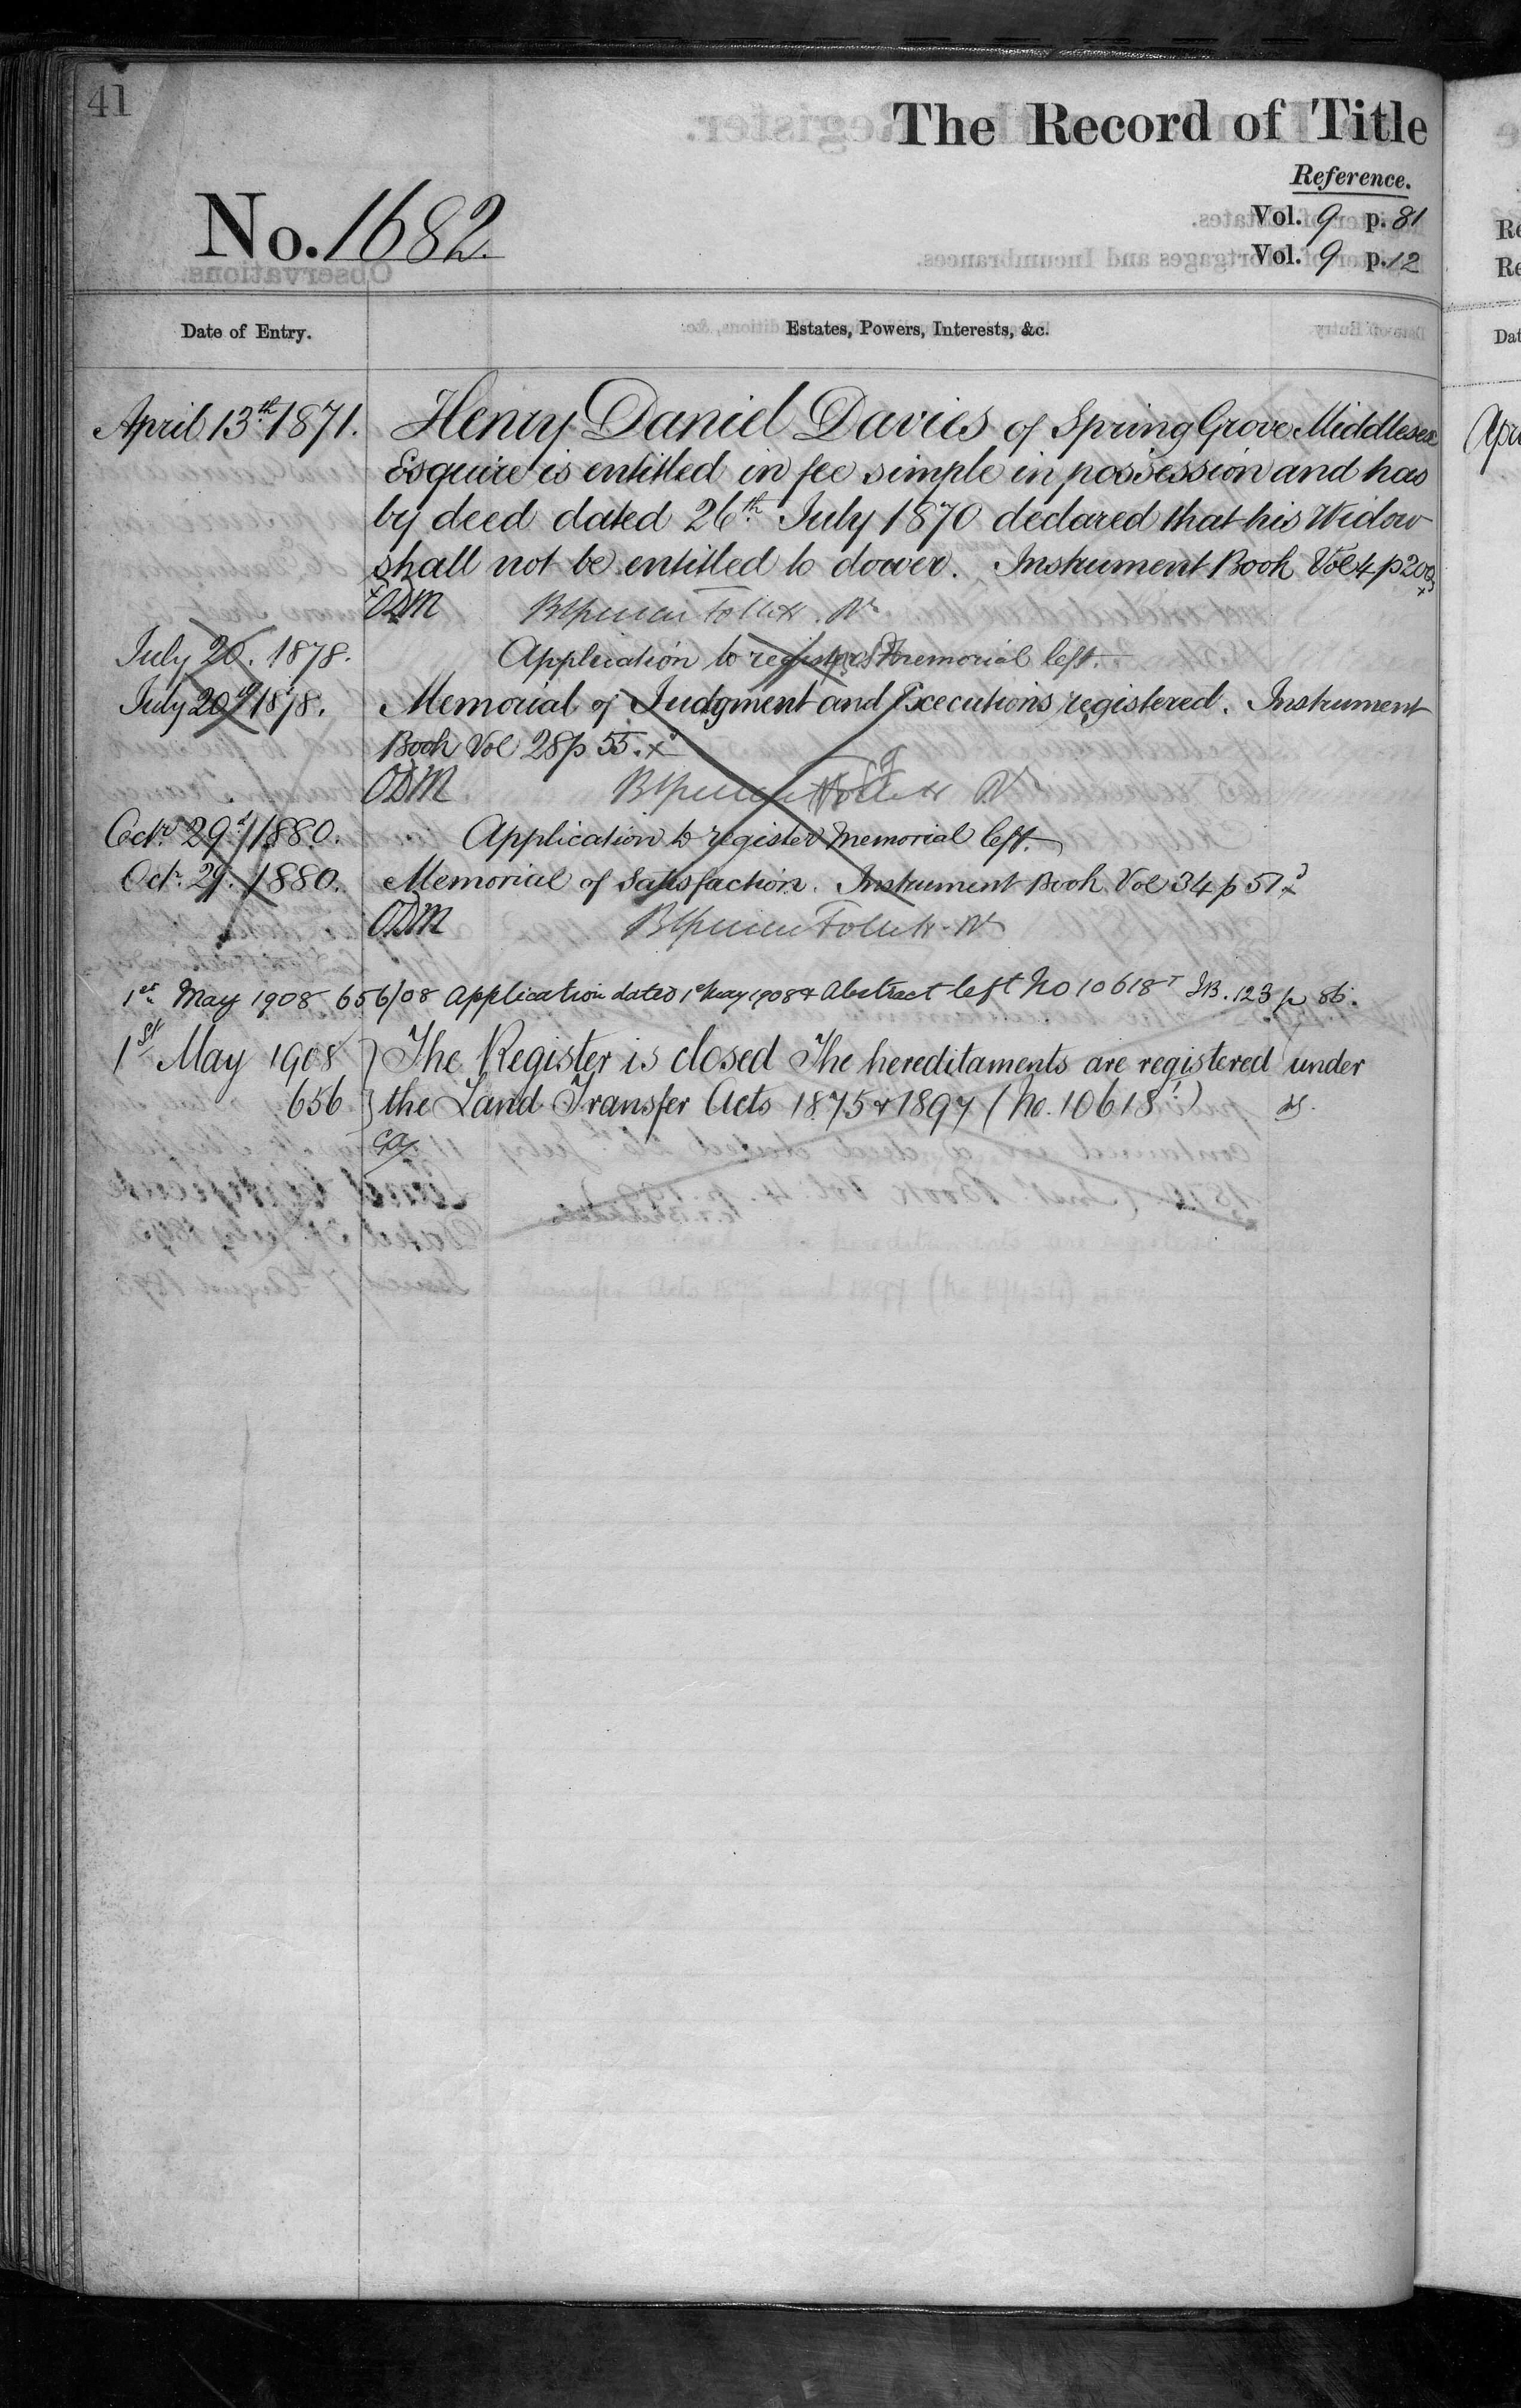 41
The Record of Title
Reference.
No. 1682.
Vol. 9 p. 81
Vol. 9 p. 12
Date of Entry.
Estates, Powers, Interests, &c.
April 13th. 1871. Henry Daniel Davies of Spring Grove Middlesex
Esquire is entitled in fee simple in possession and has
by deed dated 26th. July 1870 declared that his Widow
shall not be entitled to dower. Instrument Book Vol 4 p 200
ODM
July 20. 1878. Application to register memorial left.
July 20 1878. Memorial of Judgment and Executions registered. Instrument
Book Vol 28 p 55.
ODM
Octr. 29. 1880. Application to register memorial left.
Oct. 29. 1880. Memorial of Satisfaction. Instrument Book Vol 34 p 51
ODM
1st May 1908 656/08 Application dated 1st May 1908 & Abstract left No 10618 I.B. 123 p 86.
1st May 1908 } The Register is closed The hereditaments are registered under
656 } the Land Transfer Acts 1875 & 1897 (No. 10618)